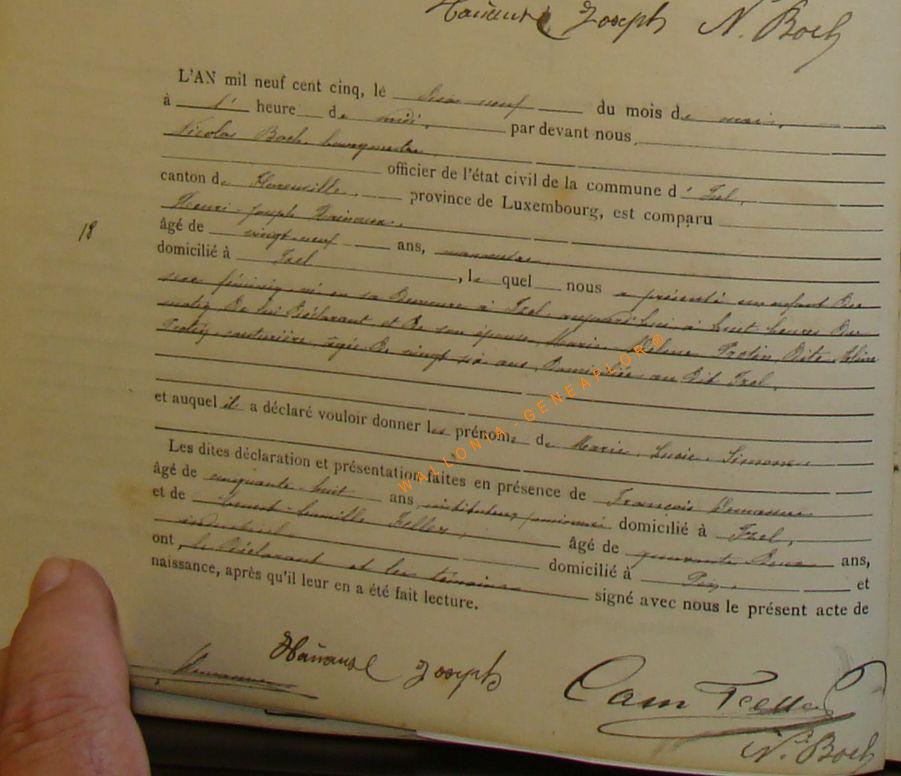 Joseph N. Boch
L'AN mil neuf cent cinq, le dix neuf du mois de mai,
à l' heure de midi, par devant nous
Nicolas Boch, bourgmestre
officier de l'état civil de la commune d' Izel,
canton de Florenville, province de Luxembourg, est comparu
Henri Joseph
18
âgé de vingt neuf ans,
domicilié à Izel, le quel nous a présenté un enfant du
sexe féminin, né en sa demeure à Izel, aujourd'hui à huit heures du
matin, de lui déclarant et de son épouse, Marie
couturière, âgée de vingt six ans domiciliée au dit Izel.
et auquel il a déclaré vouloir donner les prénoms de Marie, Lucie, Simonne
Les dites déclaration et présentation faites en présence de François
âgé de cinquante huit ans, instituteur pensionné domicilié à Izel,
et de Camille âgé de quarante deux ans,
industriel domicilié à et
ont, le déclarant et les témoins signé avec nous le présent acte de
naissance, après qu'il leur en a été fait lecture.
Joseph
Cam
N. Boch
WALLONIA - GENEAFLOR@